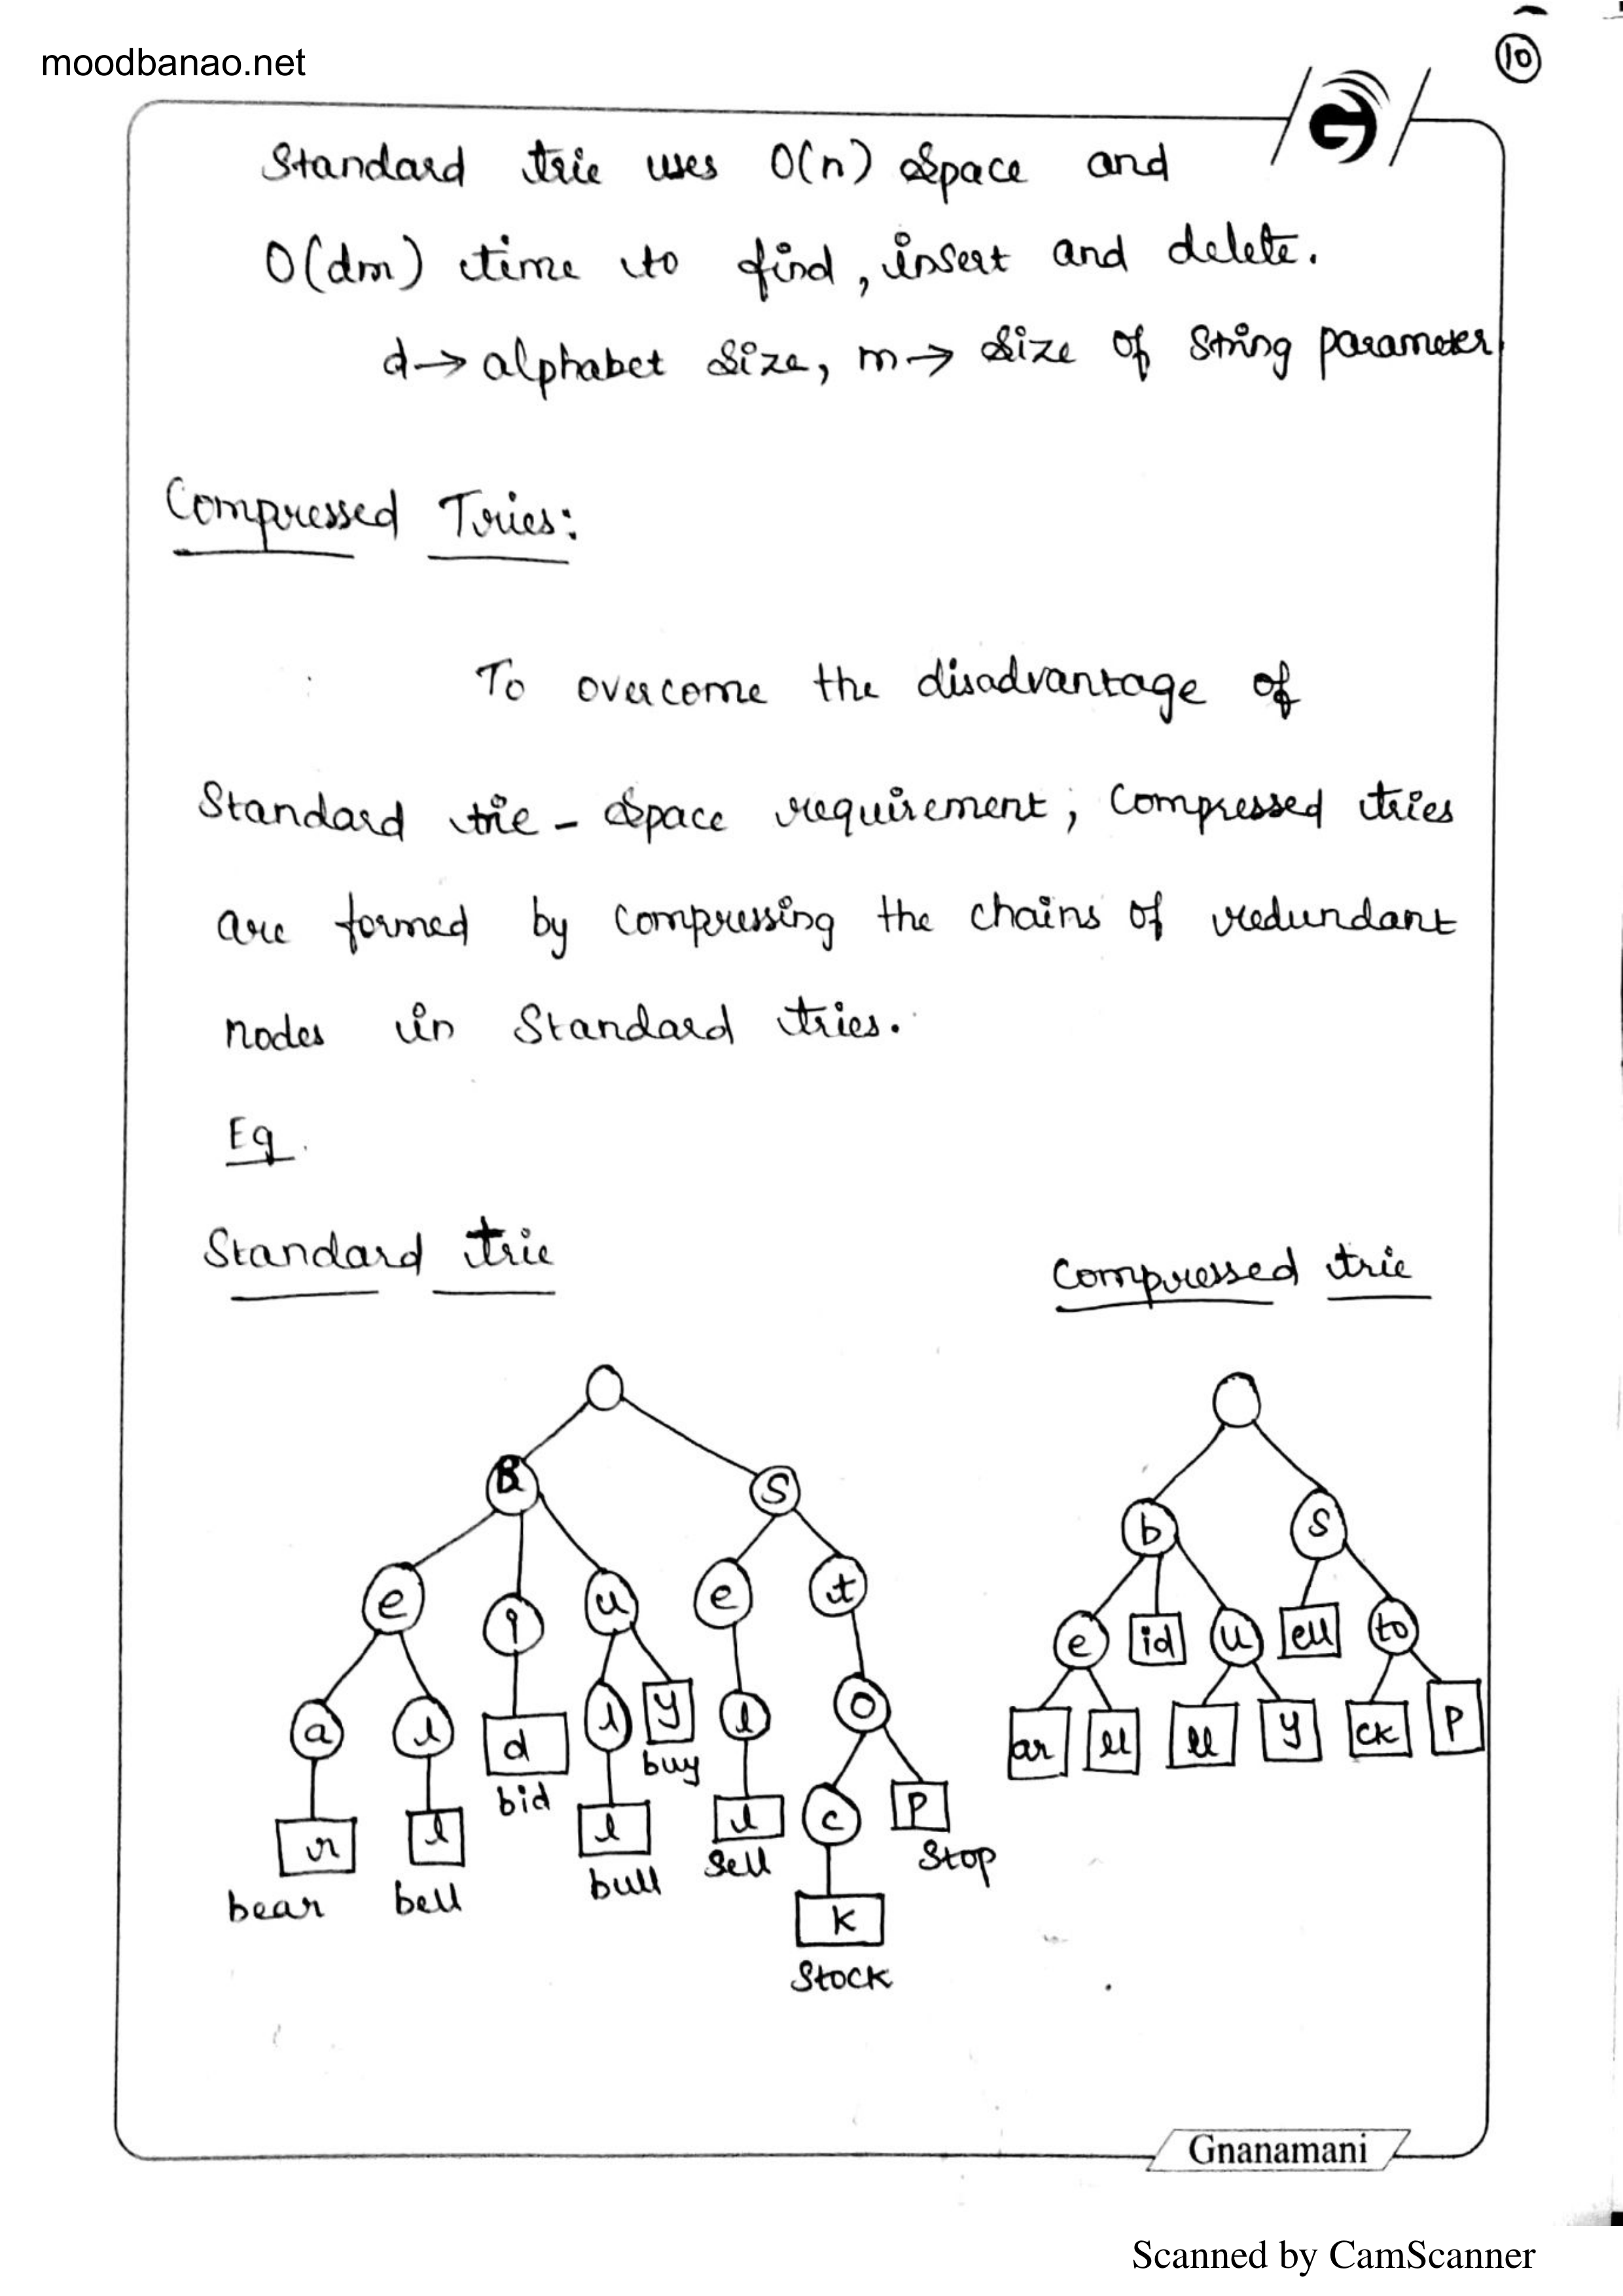 moodbanao.net
10
Standard trie uses O(n) space and
O(dm) time to find, insert and delete.
d→ alphabet size, m→ size of string parameter
Compressed Tries:
To overcome the disadvantage of
Standard trie - space requirement, compressed tries
are formed by compressing the chains of redundant
nodes in Standard tries.
Eg.
Standard trie
Compressed trie
B S
b S
e i u e t
e id u ell to
a l d l y l o
ar ll ll y ck p
bid buy
r l l l c p
bear bell bull Sell Stop
k
Stock
Gnanamani
Scanned by CamScanner